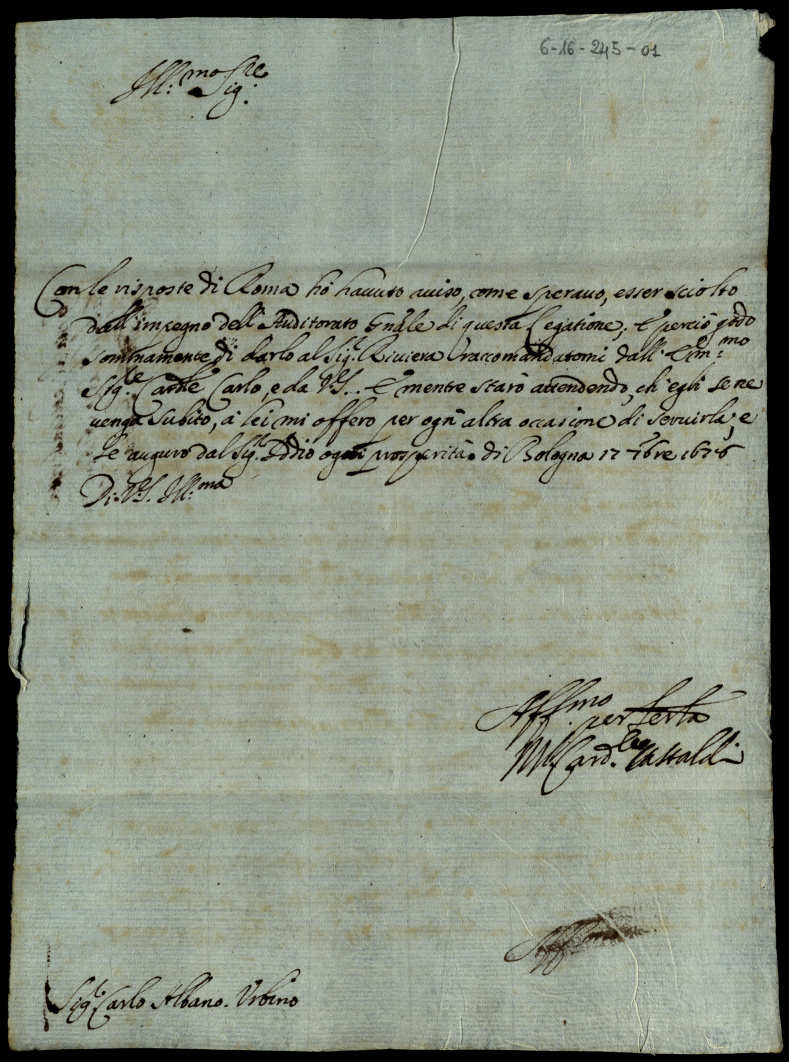 6-16-245-01
Ill:mo Sig.re
Con le risposte di Roma hò hauuto auiso, come sperauo, esser sciolto
dall'impegno dell'Auditorato Gn̄ale di questa Legatione; E perciò godo
sommamente di darlo al Sig.r Riviera raccomandatomi dall'Em:mo
Sig.re Cardle Carlo, e da V.S. . E mentre starò attendendo, ch'egli se ne
uenga subito, à lei mi offero per ogn'altra occasione di seruirla; e
le auguro dal Sig.r Iddio ogni prosperità. di Bologna 17 7bre 1676
Di V.S. Ill:ma
Aff.mo per
M Card.le Gastaldi
Aff
Sig.r Carlo Albano. Urbino